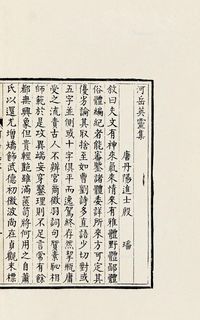 河岳英靈集
唐丹陽進士殷 璠
敘曰夫文有神來氣來情來有雅體野體鄙體
俗體編紀者能審鑒諸體委詳所來方可定其
優劣論其取捨至如曹劉詩多直語少切對或
五字並側或十字俱平而逸駕終存然挈瓶膚
受之流責古人不辨宮商徵羽詞句質素恥相
師範於是攻異端妄穿鑿理則不足言常有餘
都無興象但貴輕艷雖滿篋笥將何用之自蕭
氏以還尤增矯飾武德初微波尚在貞觀末標